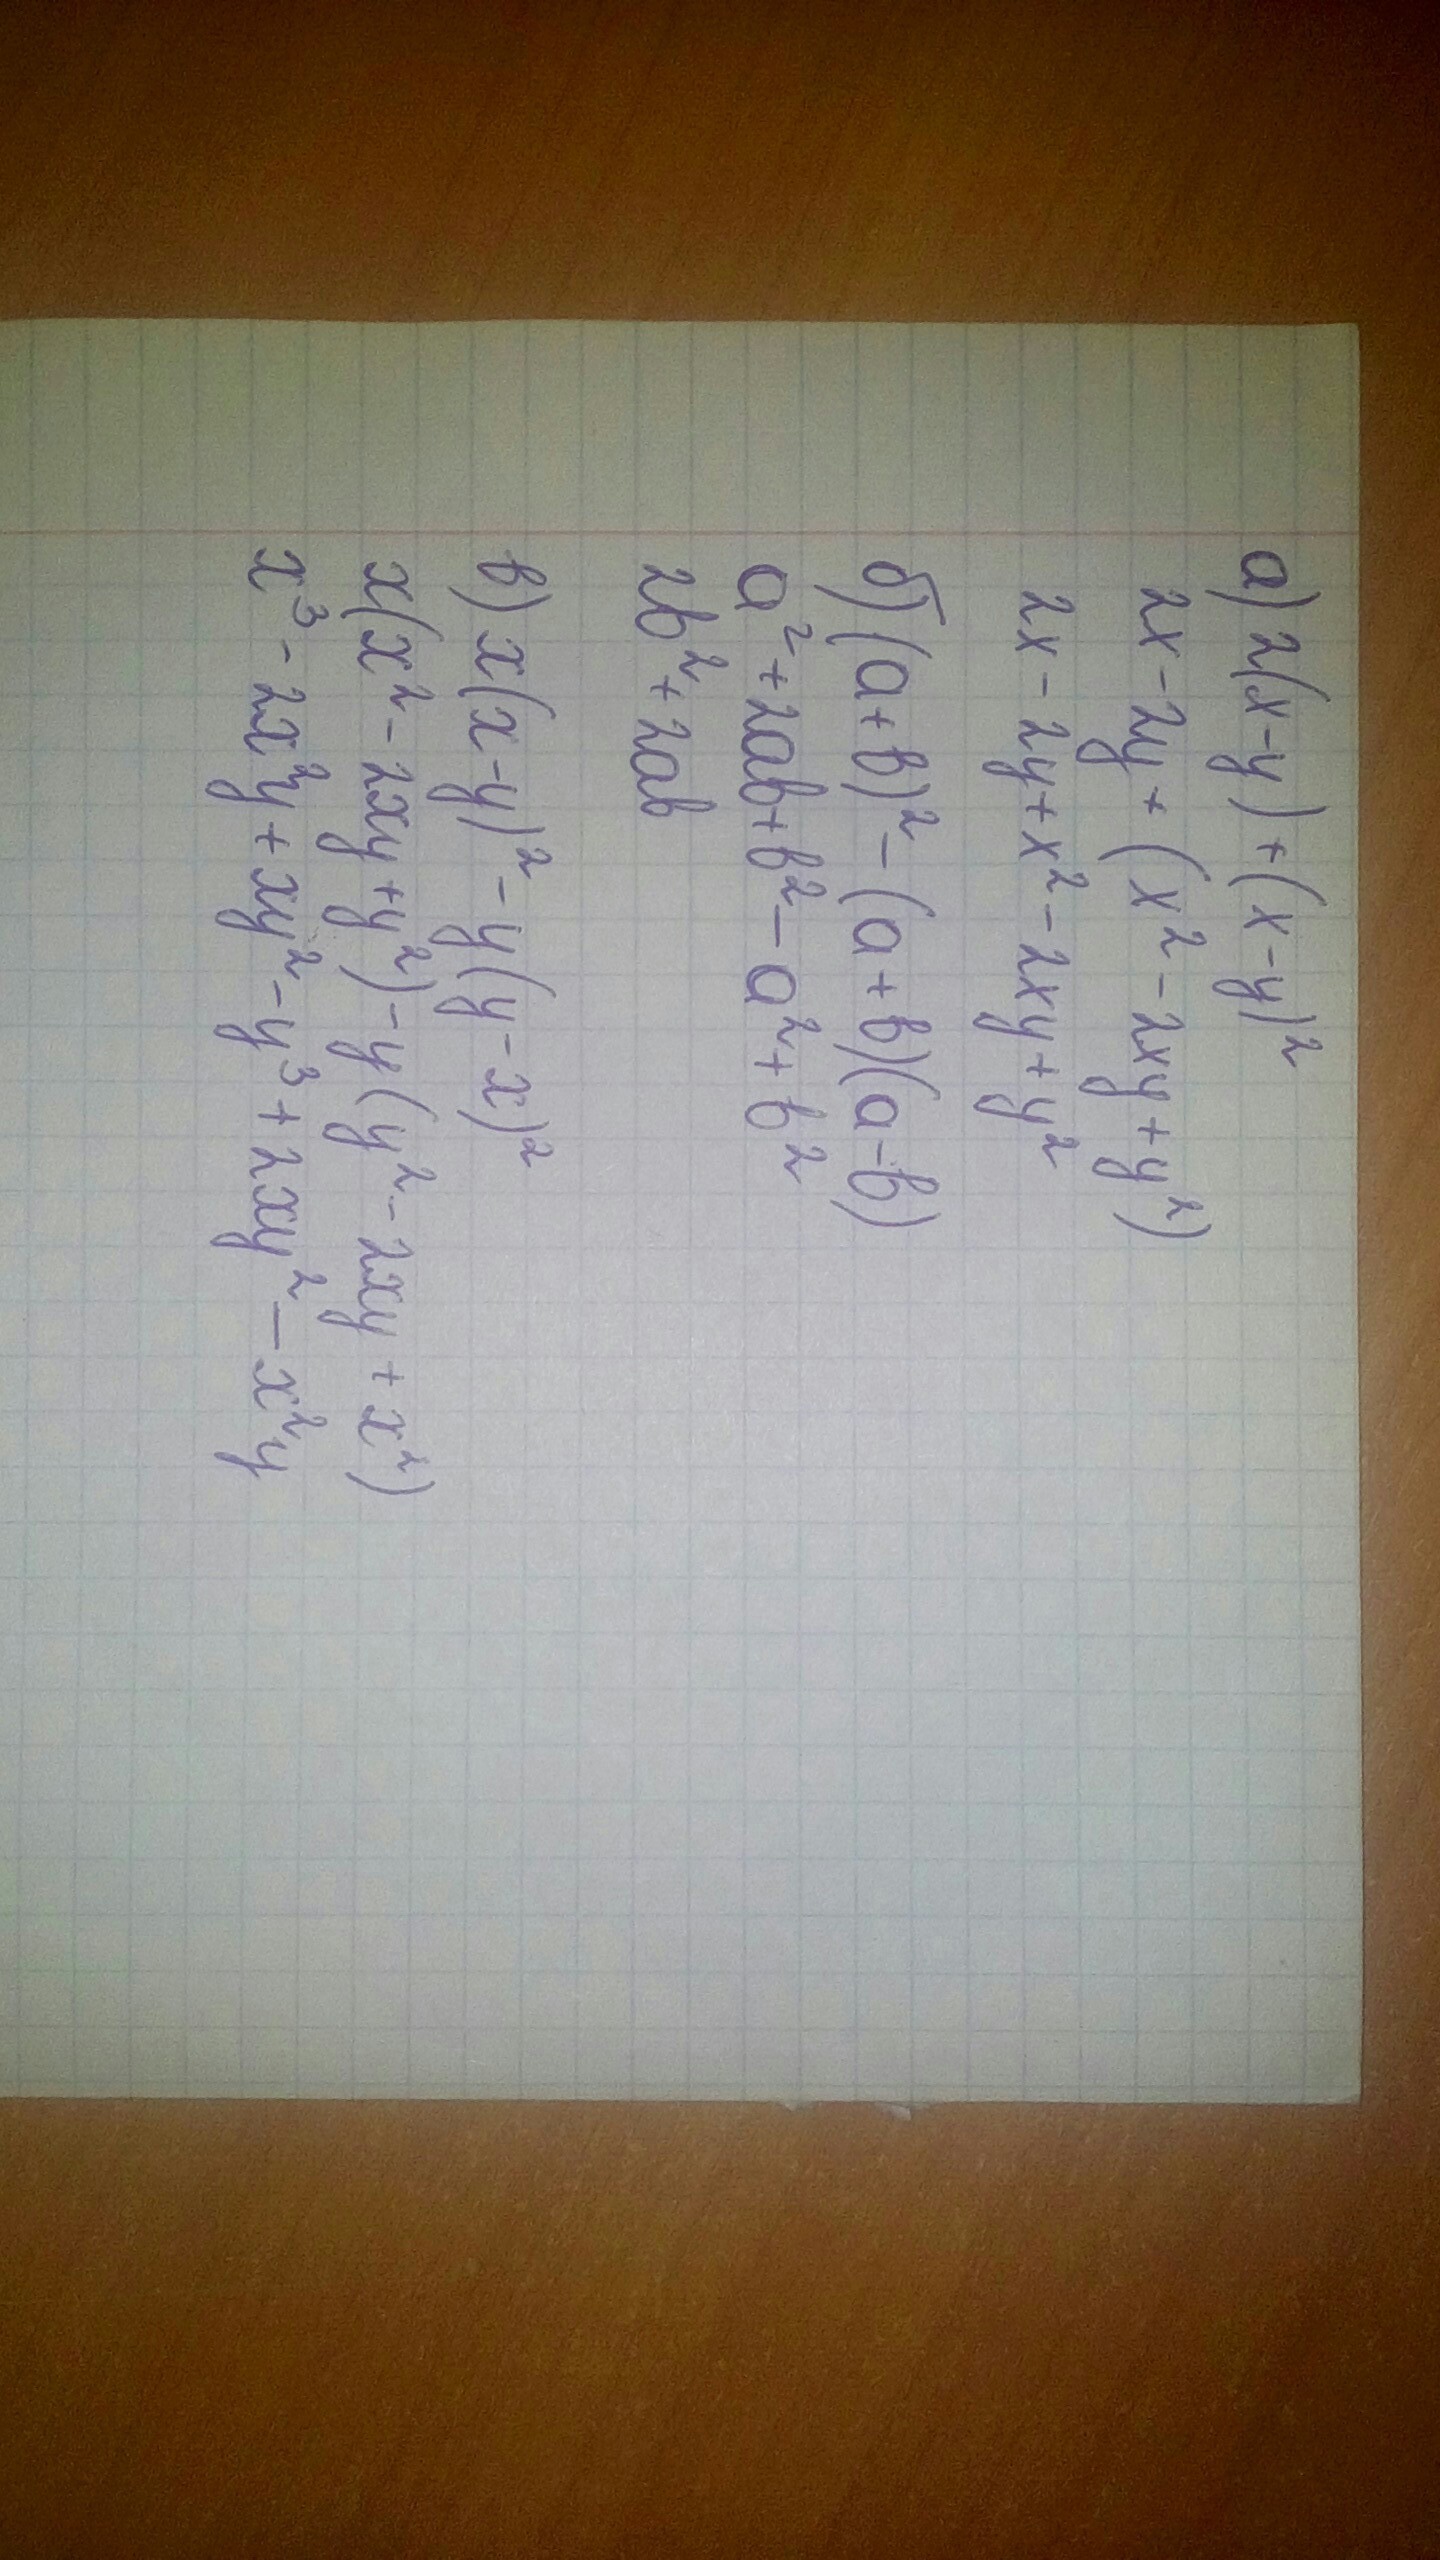 а) 2(x-y)+(x-y)²
2x-2y+(x²-2xy+y²)
2x-2y+x²-2xy+y²
б) (a+b)²-(a+b)(a-b)
a²+2ab+b²-a²+b²
2b²+2ab
в) x(x-y)²-y(y-x)²
x(x²-2xy+y²)-y(y²-2xy+x²)
x³-2x²y+xy²-y³+2xy²-x²y